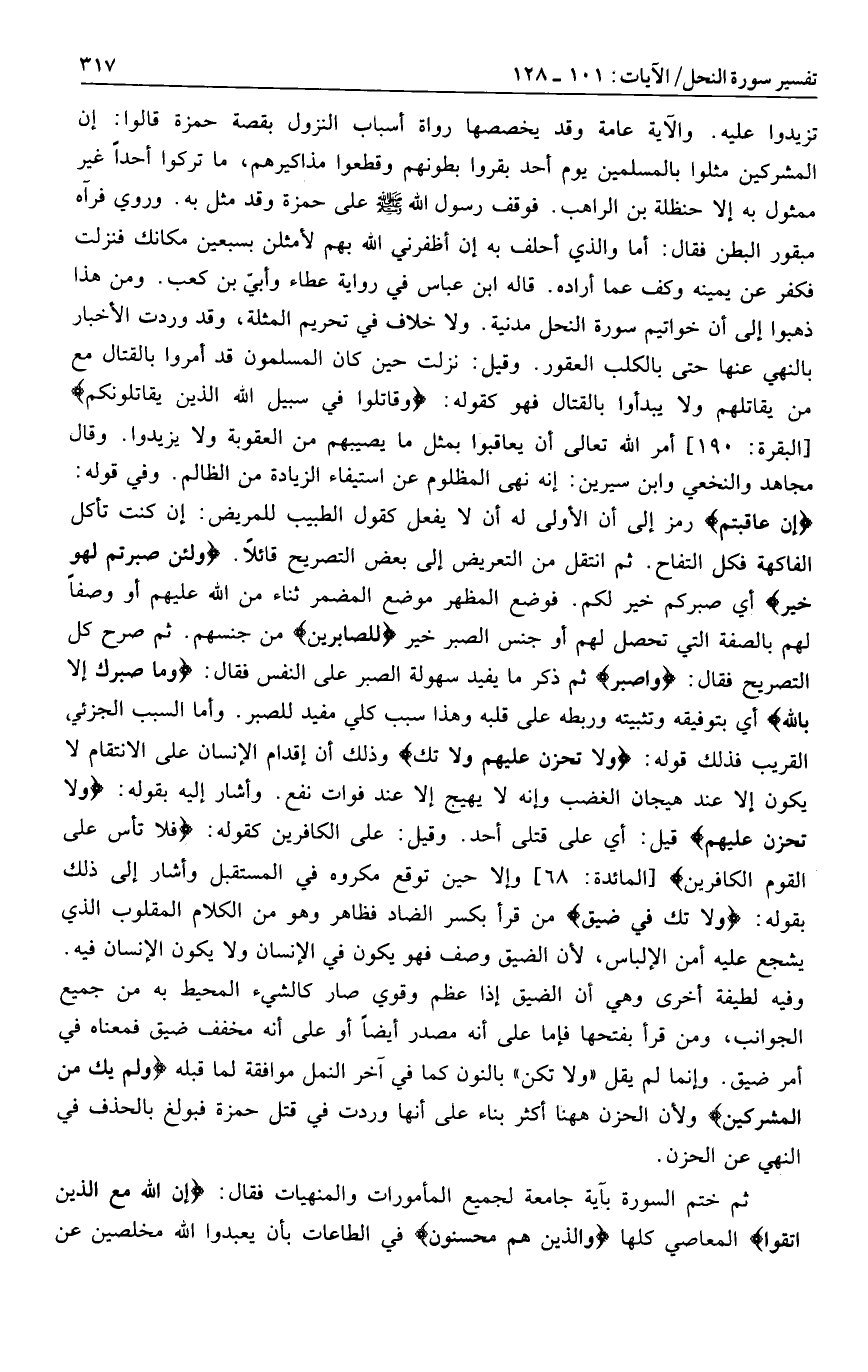 تفسير سورة النحل/ الآيات: ١٠١ ـ ١٢٨
٣١٧
تزيدوا عليه. والآية عامة وقد يخصصها رواة أسباب النزول بقصة حمزة قالوا: إن
المشركين مثلوا بالمسلمين يوم أحد بقروا بطونهم وقطعوا مذاكيرهم، ما تركوا أحداً غير
ممثول به إلا حنظلة بن الراهب. فوقف رسول الله ﷺ على حمزة وقد مثل به. وروي فرآه
مبقور البطن فقال: أما والذي أحلف به إن أظفرني الله بهم لأمثلن بسبعين مكانك فنزلت
فكفر عن يمينه وكف عما أراده. قاله ابن عباس في رواية عطاء وأبيّ بن كعب. ومن هذا
ذهبوا إلى أن خواتيم سورة النحل مدنية. ولا خلاف في تحريم المثلة، وقد وردت الأخبار
بالنهي عنها حتى بالكلب العقور. وقيل: نزلت حين كان المسلمون قد أمروا بالقتال مع
من يقاتلهم ولا يبدأوا بالقتال فهو كقوله: ﴿وقاتلوا في سبيل الله الذين يقاتلونكم﴾
[البقرة: ١٩٠] أمر الله تعالى أن يعاقبوا بمثل ما يصيبهم من العقوبة ولا يزيدوا. وقال
مجاهد والنخعي وابن سيرين: إنه نهى المظلوم عن استيفاء الزيادة من الظالم. وفي قوله:
﴿إن عاقبتم﴾ رمز إلى أن الأولى له أن لا يفعل كقول الطبيب للمريض: إن كنت تأكل
الفاكهة فكل التفاح. ثم انتقل من التعريض إلى بعض التصريح قائلاً. ﴿ولئن صبرتم لهو
خير﴾ أي صبركم خير لكم. فوضع المظهر موضع المضمر ثناء من الله عليهم أو وصفاً
لهم بالصفة التي تحصل لهم أو جنس الصبر خير ﴿للصابرين﴾ من جنسهم. ثم صرح كل
التصريح فقال: ﴿واصبر﴾ ثم ذكر ما يفيد سهولة الصبر على النفس فقال: ﴿وما صبرك إلا
بالله﴾ أي بتوفيقه وتثبيته وربطه على قلبه وهذا سبب كلي مفيد للصبر. وأما السبب الجزئي
القريب فذلك قوله: ﴿ولا تحزن عليهم ولا تك﴾ وذلك أن إقدام الإنسان على الانتقام لا
يكون إلا عند هيجان الغضب وإنه لا يهيج إلا عند فوات نفع. وأشار إليه بقوله: ﴿ولا
تحزن عليهم﴾ قيل: أي على قتلى أحد. وقيل: على الكافرين كقوله: ﴿فلا تأس على
القوم الكافرين﴾ [المائدة: ٦٨] وإلا حين توقع مكروه في المستقبل وأشار إلى ذلك
بقوله: ﴿ولا تك في ضيق﴾ من قرأ بكسر الضاد فظاهر وهو من الكلام المقلوب الذي
يشجع عليه أمن الإلباس، لأن الضيق وصف فهو يكون في الإنسان ولا يكون الإنسان فيه.
وفيه لطيفة أخرى وهي أن الضيق إذا عظم وقوي صار كالشيء المحيط به من جميع
الجوانب، ومن قرأ بفتحها فإما على أنه مصدر أيضاً أو على أنه مخفف ضيق فمعناه في
أمر ضيق. وإنما لم يقل «ولا تكن» بالنون كما في آخر النمل موافقة لما قبله ﴿ولم يك من
المشركين﴾ ولأن الحزن ههنا أكثر بناء على أنها وردت في قتل حمزة فبولغ بالحذف في
النهي عن الحزن.
ثم ختم السورة بآية جامعة لجميع المأمورات والمنهيات فقال: ﴿إن الله مع الذين
اتقوا﴾ المعاصي كلها ﴿والذين هم محسنون﴾ في الطاعات بأن يعبدوا الله مخلصين عن